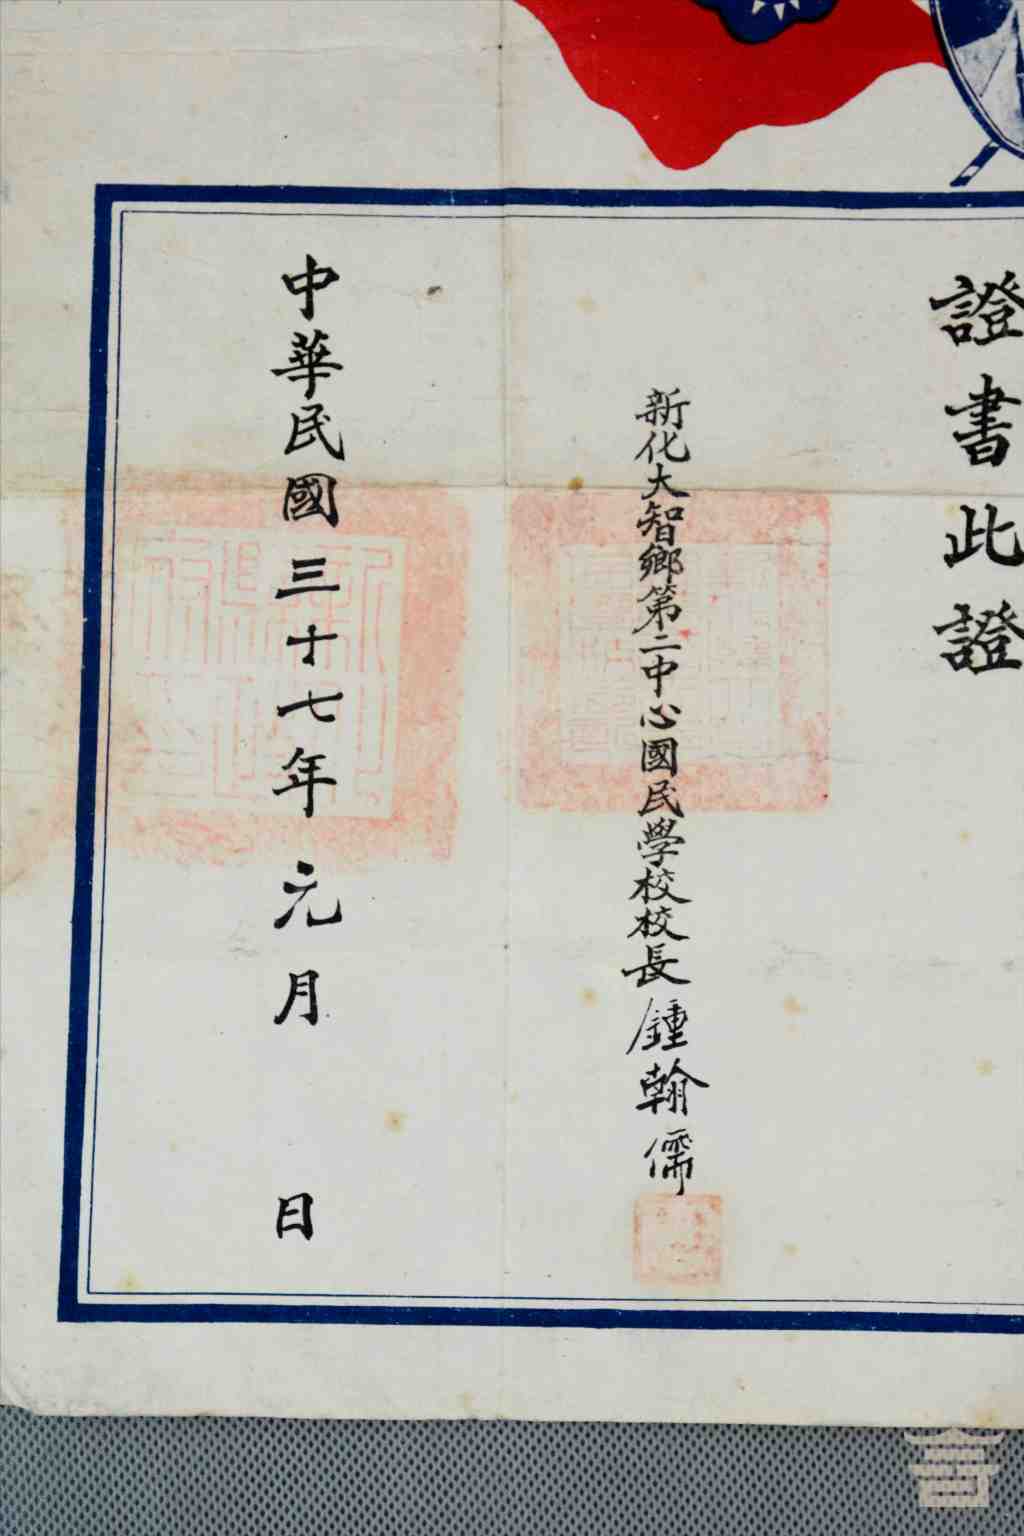 證書此證
新化大智鄉第二中心國民學校校長鍾翰儒
中華民國三十七年元月 日